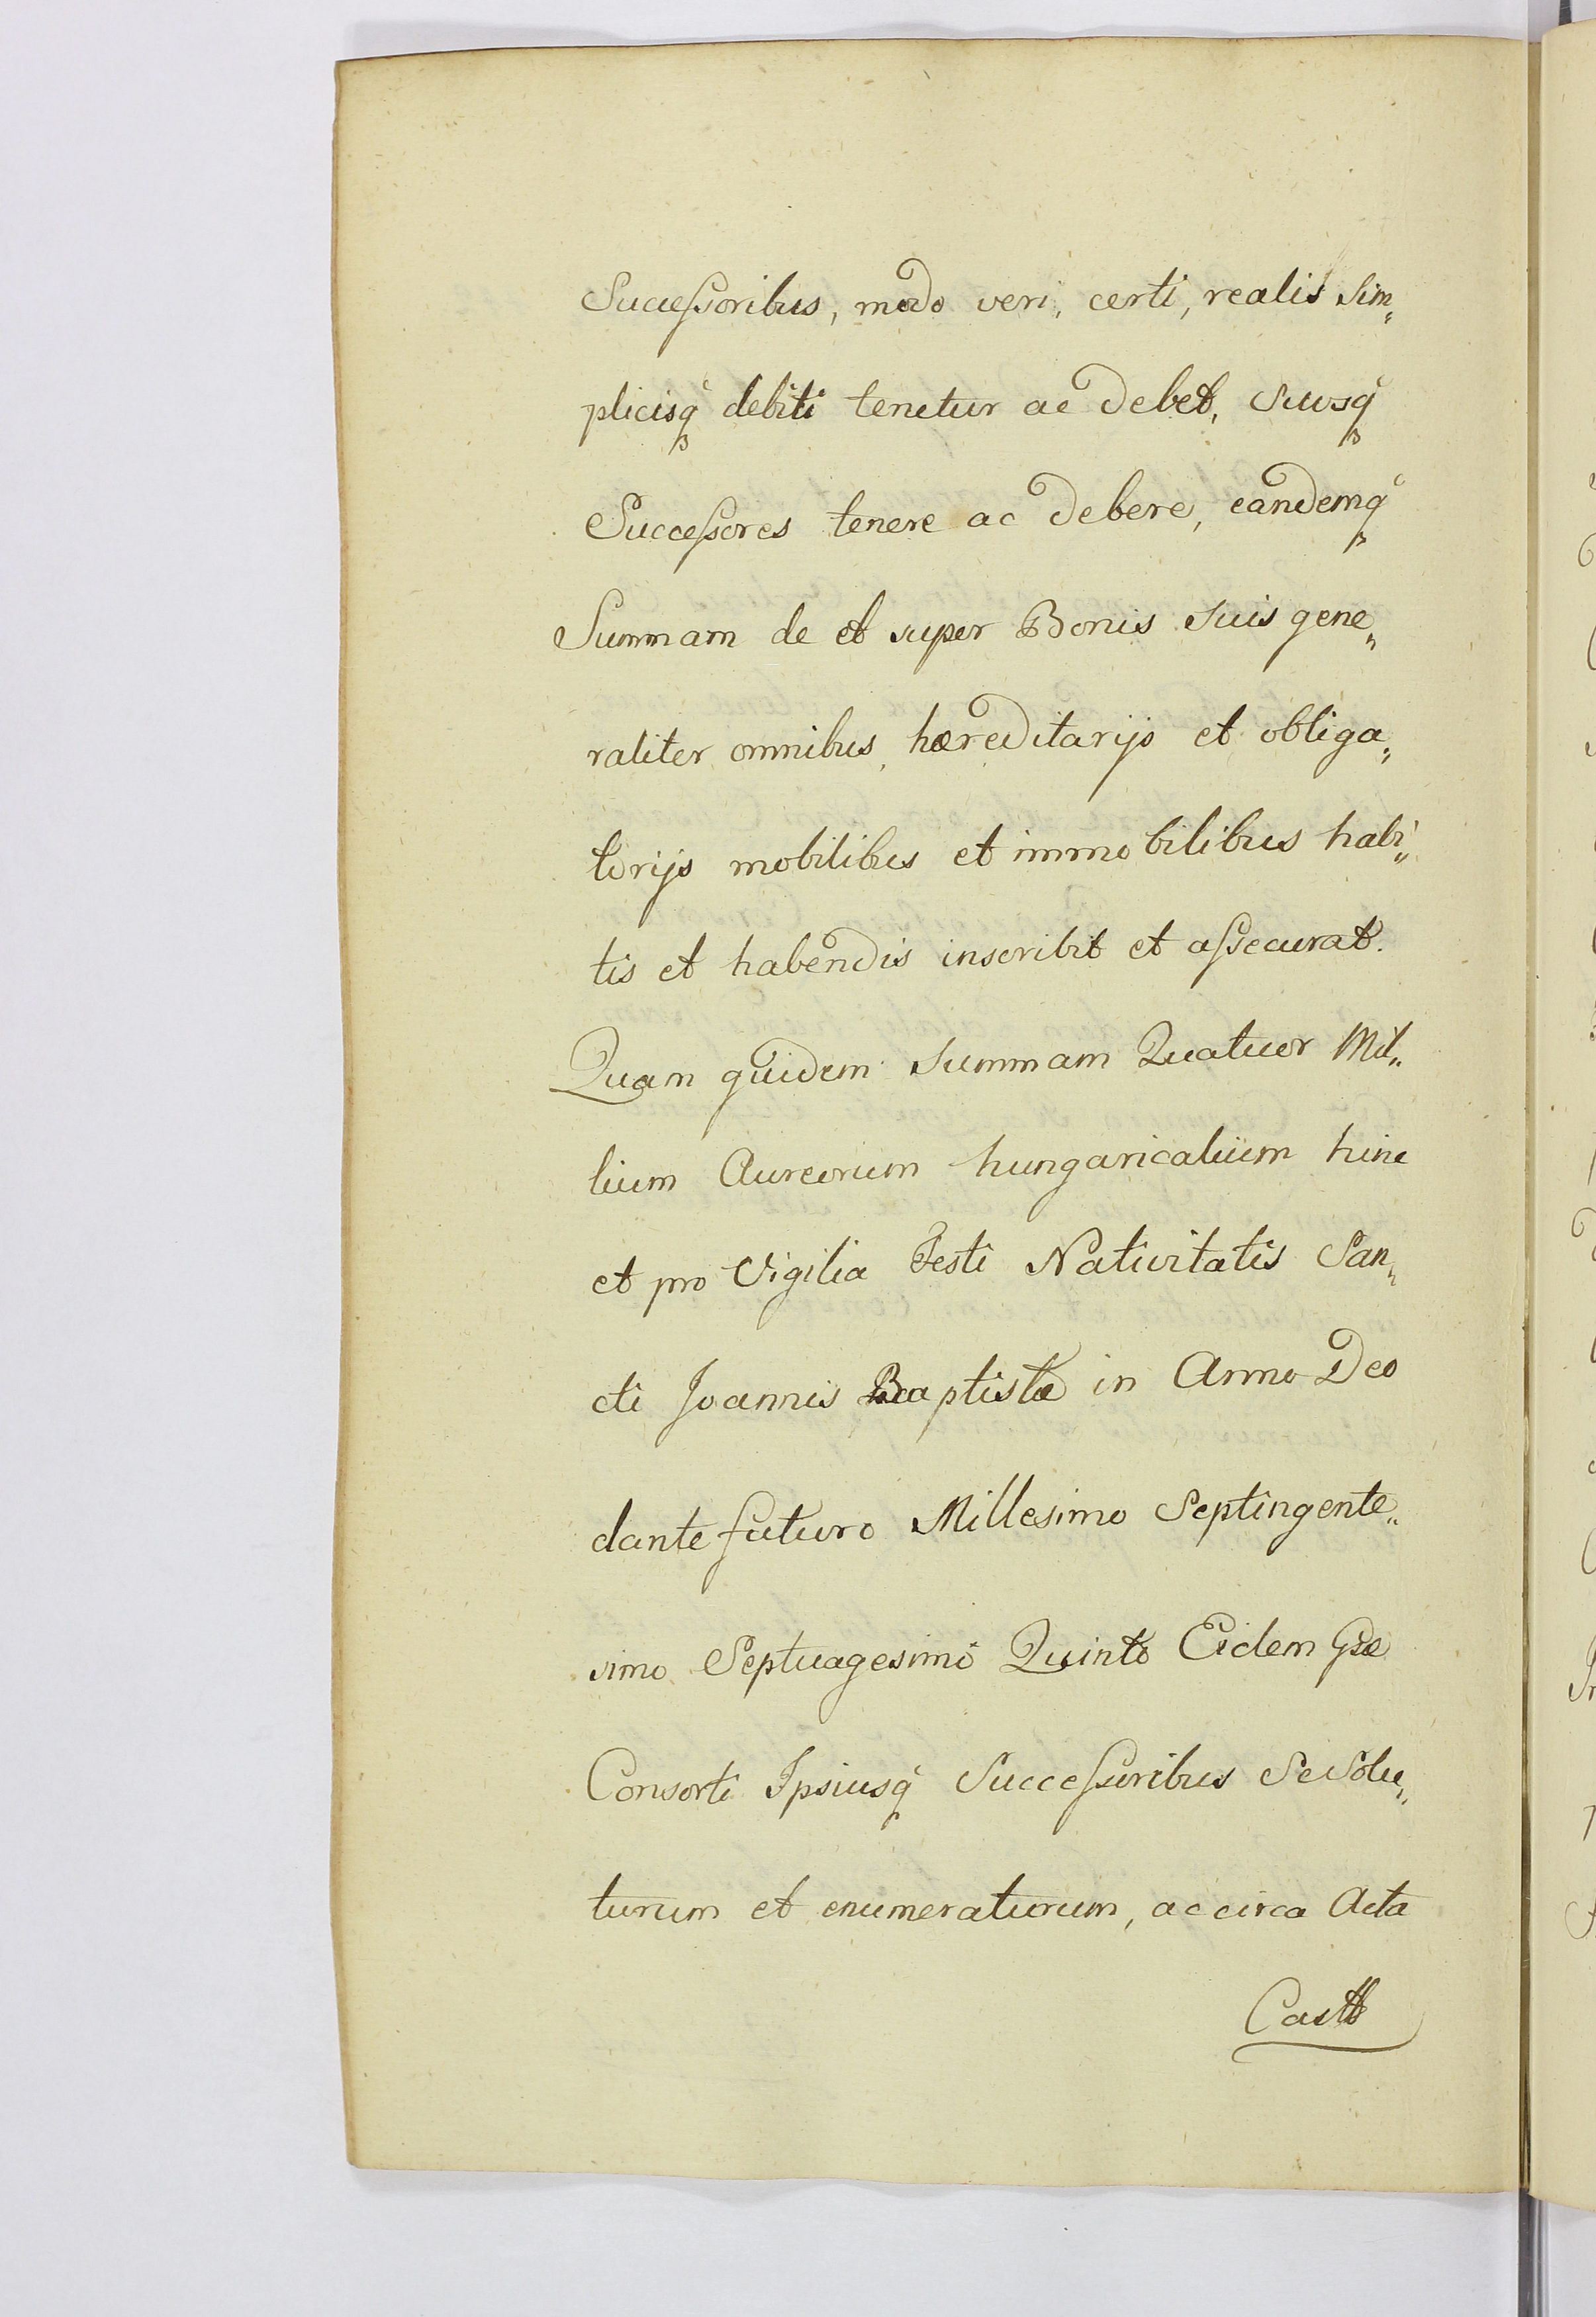 Successoribus, modo veri, certi, realis sim„
plicisq̃ debiti tenetur ac debet, suosq̃
Successores tenere ac debere, eandemq̃
Summam de et super Bonis suis gene„
raliter omnibus, hæreditarijs et obliga„
torijs mobilibus et immobilibus habi„
tis et habendis inscribit et assecurat.
Quam quidem summam Quatuor Mil„
lium Aureorum hungaricalium hinc
et pro Vigilia Festi Nativitatis San„
cti Joannis Baptistæ in Anno Deo
dante futuro Millesimo Septingente„
simo Septuagesimo Quinto Eidem Gsæ
Consorti Ipsiusq̃ Successoribus Se Solu„
turum et enumeraturum, ac circa Acta